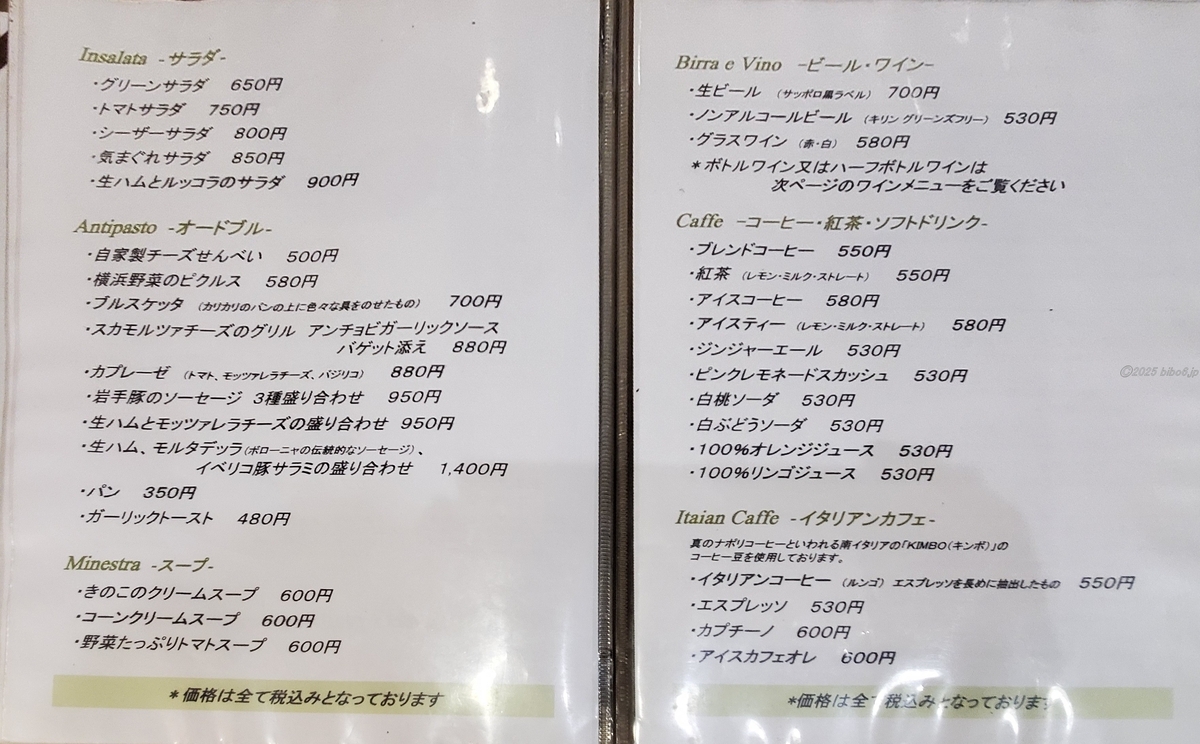 Insalata -サラダ-
・グリーンサラダ 650円
・トマトサラダ 750円
・シーザーサラダ 800円
・気まぐれサラダ 850円
・生ハムとルッコラのサラダ 900円
Antipasto -オードブル-
・自家製チーズせんべい 500円
・横浜野菜のピクルス 580円
・ブルスケッタ (カリカリのパンの上に色々な具をのせたもの) 700円
・スカモルツァチーズのグリル アンチョビガーリックソース
バゲット添え 880円
・カプレーゼ (トマト、モッツァレラチーズ、バジリコ) 880円
・岩手豚のソーセージ 3種盛り合わせ 950円
・生ハムとモッツァレラチーズの盛り合わせ 950円
・生ハム、モルタデッラ(ボローニャの伝統的なソーセージ)、
イベリコ豚サラミの盛り合わせ 1,400円
・パン 350円
・ガーリックトースト 480円
Minestra -スープ-
・きのこのクリームスープ 600円
・コーンクリームスープ 600円
・野菜たっぷりトマトスープ 600円
*価格は全て税込みとなっております
Birra e Vino -ビール・ワイン-
・生ビール (サッポロ黒ラベル) 700円
・ノンアルコールビール (キリン グリーンズフリー) 530円
・グラスワイン (赤・白) 580円
*ボトルワイン又はハーフボトルワインは
次ページのワインメニューをご覧ください
Caffe -コーヒー・紅茶・ソフトドリンク-
・ブレンドコーヒー 550円
・紅茶 (レモン・ミルク・ストレート) 550円
・アイスコーヒー 580円
・アイスティー (レモン・ミルク・ストレート) 580円
・ジンジャーエール 530円
・ピンクレモネードスカッシュ 530円
・白桃ソーダ 530円
・白ぶどうソーダ 530円
・100%オレンジジュース 530円
・100%リンゴジュース 530円
Itaian Caffe -イタリアンカフェ-
真のナポリコーヒーといわれる南イタリアの「KIMBO(キンボ)」の
コーヒー豆を使用しております。
・イタリアンコーヒー (ルンゴ) エスプレッソを長めに抽出したもの 550円
・エスプレッソ 530円
・カプチーノ 600円
・アイスカフェオレ 600円
*価格は全て税込みとなっております
©2025 bibo6.jp